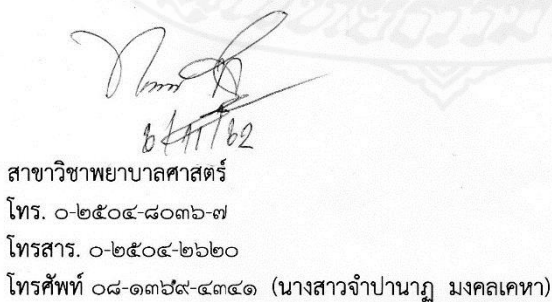 สาขาวิชาพยาบาลศาสตร์
โทร. ๐-๒๕๐๔-๘๐๓๖-๗
โทรสาร. ๐-๒๕๐๔-๒๖๒๐
โทรศัพท์ ๐๘-๑๓๖๙-๔๓๔๑ (นางสาวจำปานาฏ มงคลเคหา)